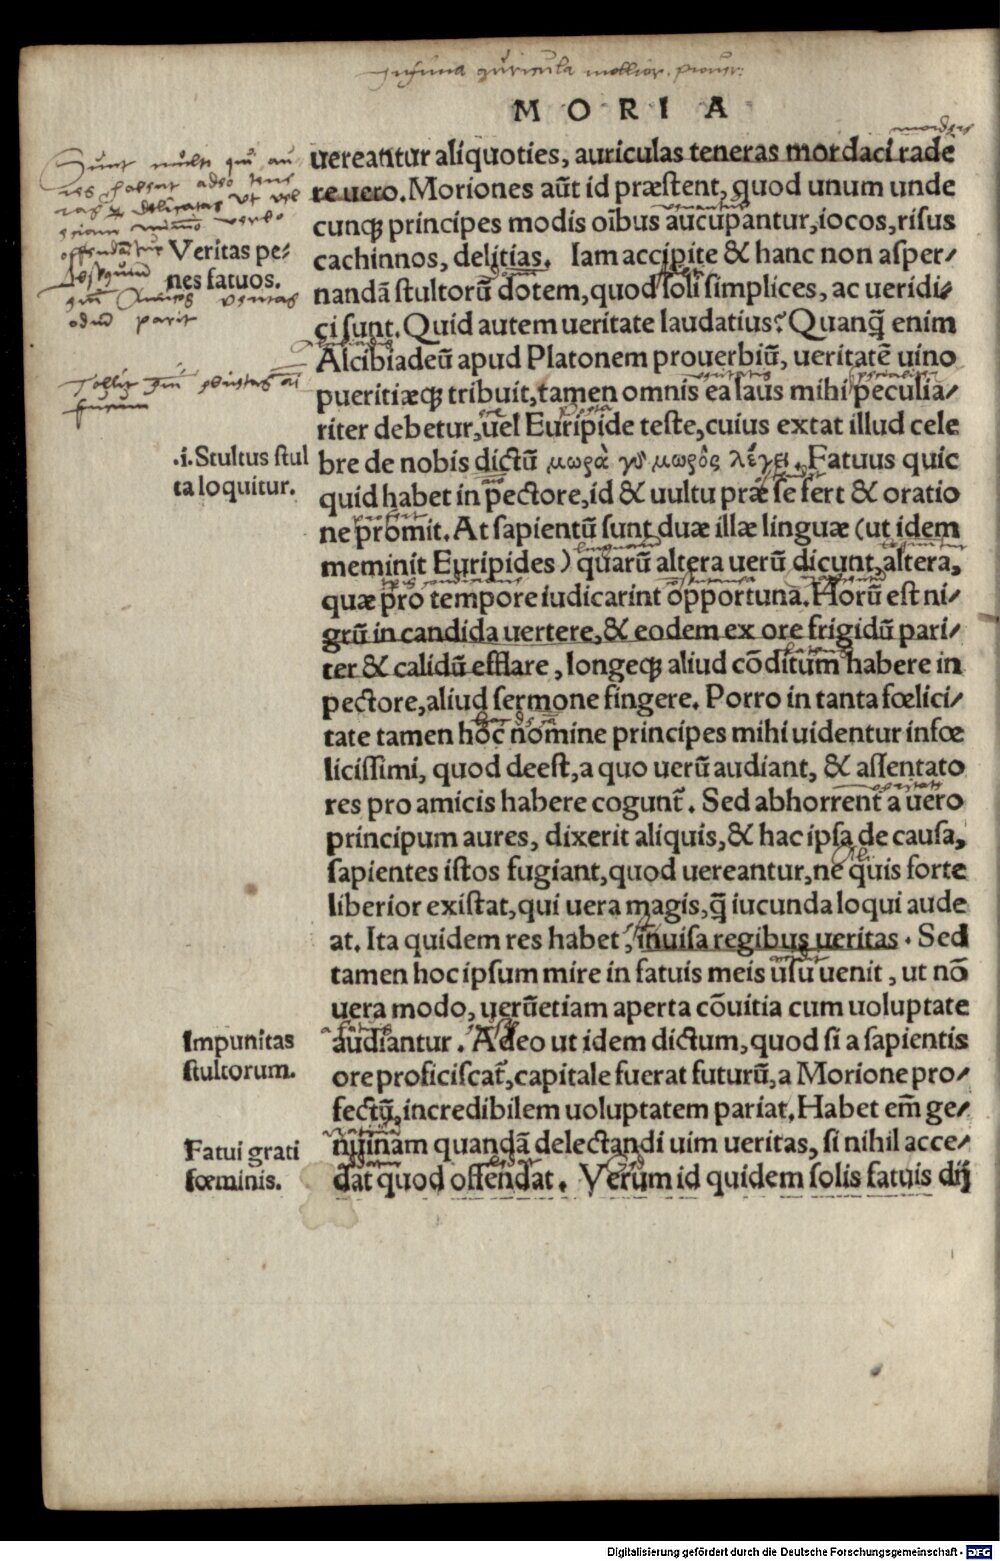 Infima auricula mollior. prouer:
MORIA
uereantur aliquoties, auriculas teneras mordaci rade
re uero. Moriones aūt id præstent, quod unum unde
cunqꝫ principes modis oībus aucupantur, iocos, risus
cachinnos, delitias. Iam accipite & hanc non asper⸗
nandā stultorū dotem, quod soli simplices, ac ueridi⸗
ci sunt. Quid autem ueritate laudatius? Quanq̄ enim
Alcibiadeū apud Platonem prouerbiū, ueritatē uino
pueritiæqꝫ tribuit, tamen omnis ea laus mihi peculia⸗
riter debetur, uel Euripide teste, cuius extat illud cele
bre de nobis dictū μωρὰ γὸ μωρὸς λέγει. Fatuus quic
quid habet in pectore, id & uultu præ se fert & oratio
ne promit. At sapientū sunt duæ illæ linguæ (ut idem
meminit Euripides) quarū altera uerū dicunt, altera,
quæ pro tempore iudicarint opportuna. Horū est ni⸗
grū in candida uertere, & eodem ex ore frigidū pari⸗
ter & calidū efflare, longeqꝫ aliud cōditum habere in
pectore, aliud sermone fingere. Porro in tanta fœlici⸗
tate tamen hoc nomine principes mihi uidentur infœ
licissimi, quod deest, a quo uerū audiant, & assentato
res pro amicis habere cogunt̄. Sed abhorrent a uero
principum aures, dixerit aliquis, & hac ipsa de causa,
sapientes istos fugiant, quod uereantur, ne quis forte
liberior existat, qui uera magis, q̄ iucunda loqui aude
at. Ita quidem res habet, inuisa regibus ueritas. Sed
tamen hoc ipsum mire in fatuis meis usu uenit, ut nō
uera modo, uerūetiam aperta cōuitia cum uoluptate
audiantur. Adeo ut idem dictum, quod si a sapientis
ore proficiscat̄, capitale fuerat futurū, a Morione pro⸗
fectū, incredibilem uoluptatem pariat. Habet em̄ ge⸗
nuinam quandā delectandi uim ueritas, si nihil acce⸗
dat quod offendat. Verum id quidem solis fatuis dij
Sunt multi qui au
res habent adeo tene
ras
Veritas pe⸗
nes fatuos.
veritas
odium parit
.i. Stultus stul
ta loquitur.
Impunitas
stultorum.
Fatui grati
fœminis.
Digitalisierung gefördert durch die Deutsche Forschungsgemeinschaft - DFG